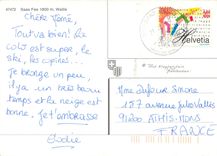 47472 Saas Fee 1800 m, Wallis
Chère Mamé,
Tout va bien! Le
cours est super, le
ski, les copines...
Je bronze un peu,
il y a un très beau
temps et la neige est
bonne, Je t'embrasse
Elodie
Helvetia
Mme Dufour Simone
157 avenue Jules Vallès
91200 ATHIS-MONS
FRANCE